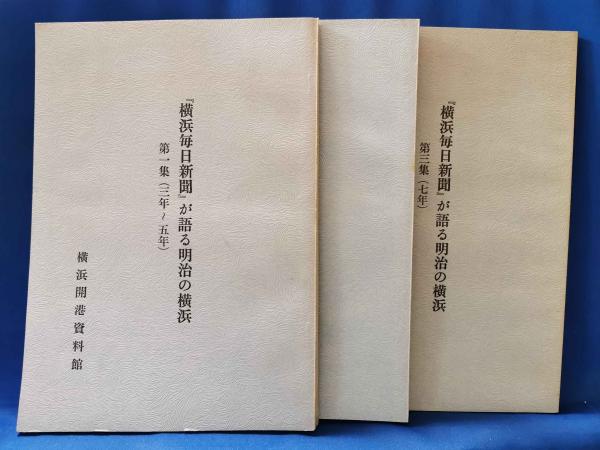 『横浜毎日新聞』が語る明治の横浜
第一集（三年～五年）
横浜開港資料館
『横浜毎日新聞』が語る明治の横浜
第三集（七年）